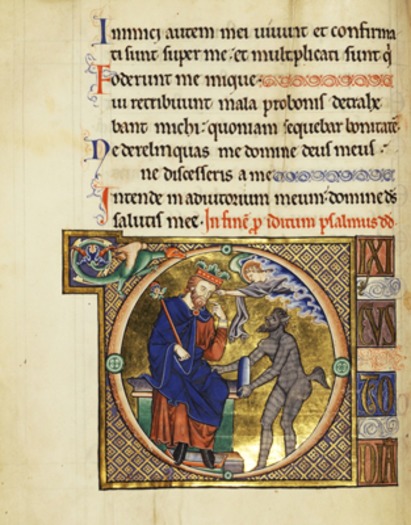 Inimici autem mei uiuunt et confirma
ti sunt super me: et multiplicati sunt q
oderunt me inique.
ui retribuunt mala pro bonis detrahe
bant michi: quoniam sequebar bonitatē.
Ne derelinquas me domine deus meus.
ne discesseris a me
Intende in adiutorium meum: domine ds
salutis mee. In finē p iditum psalmus dd.
IXI
US
TO
DIA